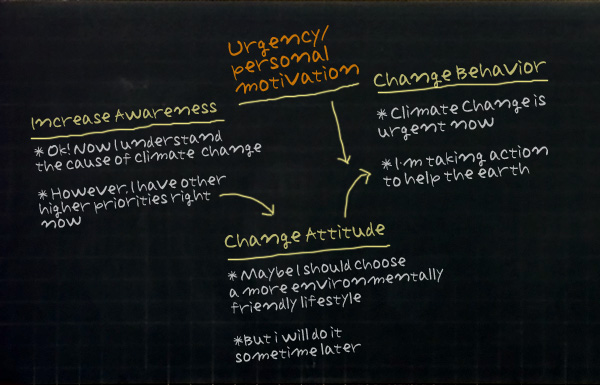 Urgency/
personal
motivation
Increase Awareness
* Ok! Now I understand
the cause of climate change
* However. I have other
higher priorities right
now
Change Attitude
* Maybe I should choose
a more environmentally
friendly lifestyle
* But i will do it
sometime later
Change Behavior
* Climate Change is
urgent now
* I'm taking action
to help the earth